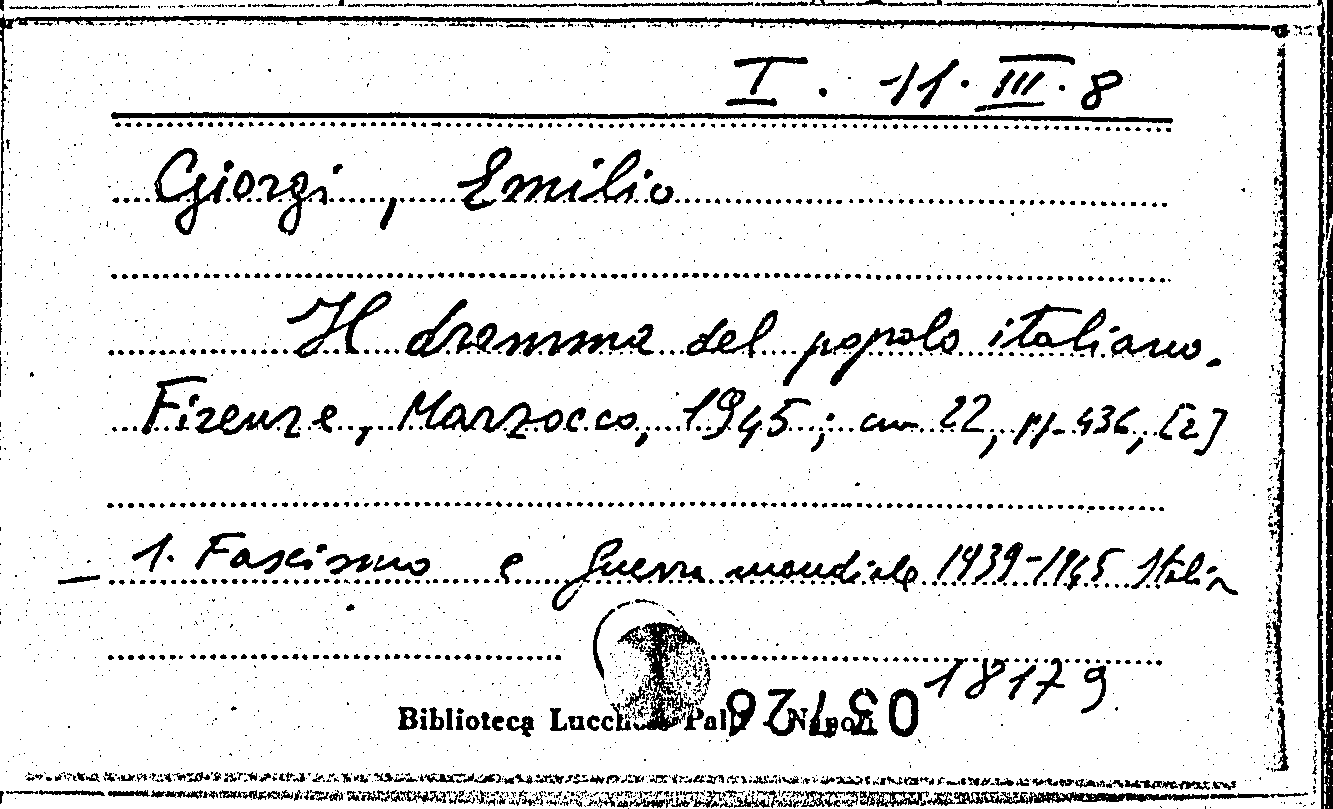 I. 11. III. 8
Giorgi, Emilio
Il dramma del popolo italiano.
Firenze, Marzocco, 1945; cm 22, pp. 436, [2]
— 1. Fascismo e guerra mondiale 1939-1945 Italia
18179
Biblioteca Lucchesi Palli - Napoli